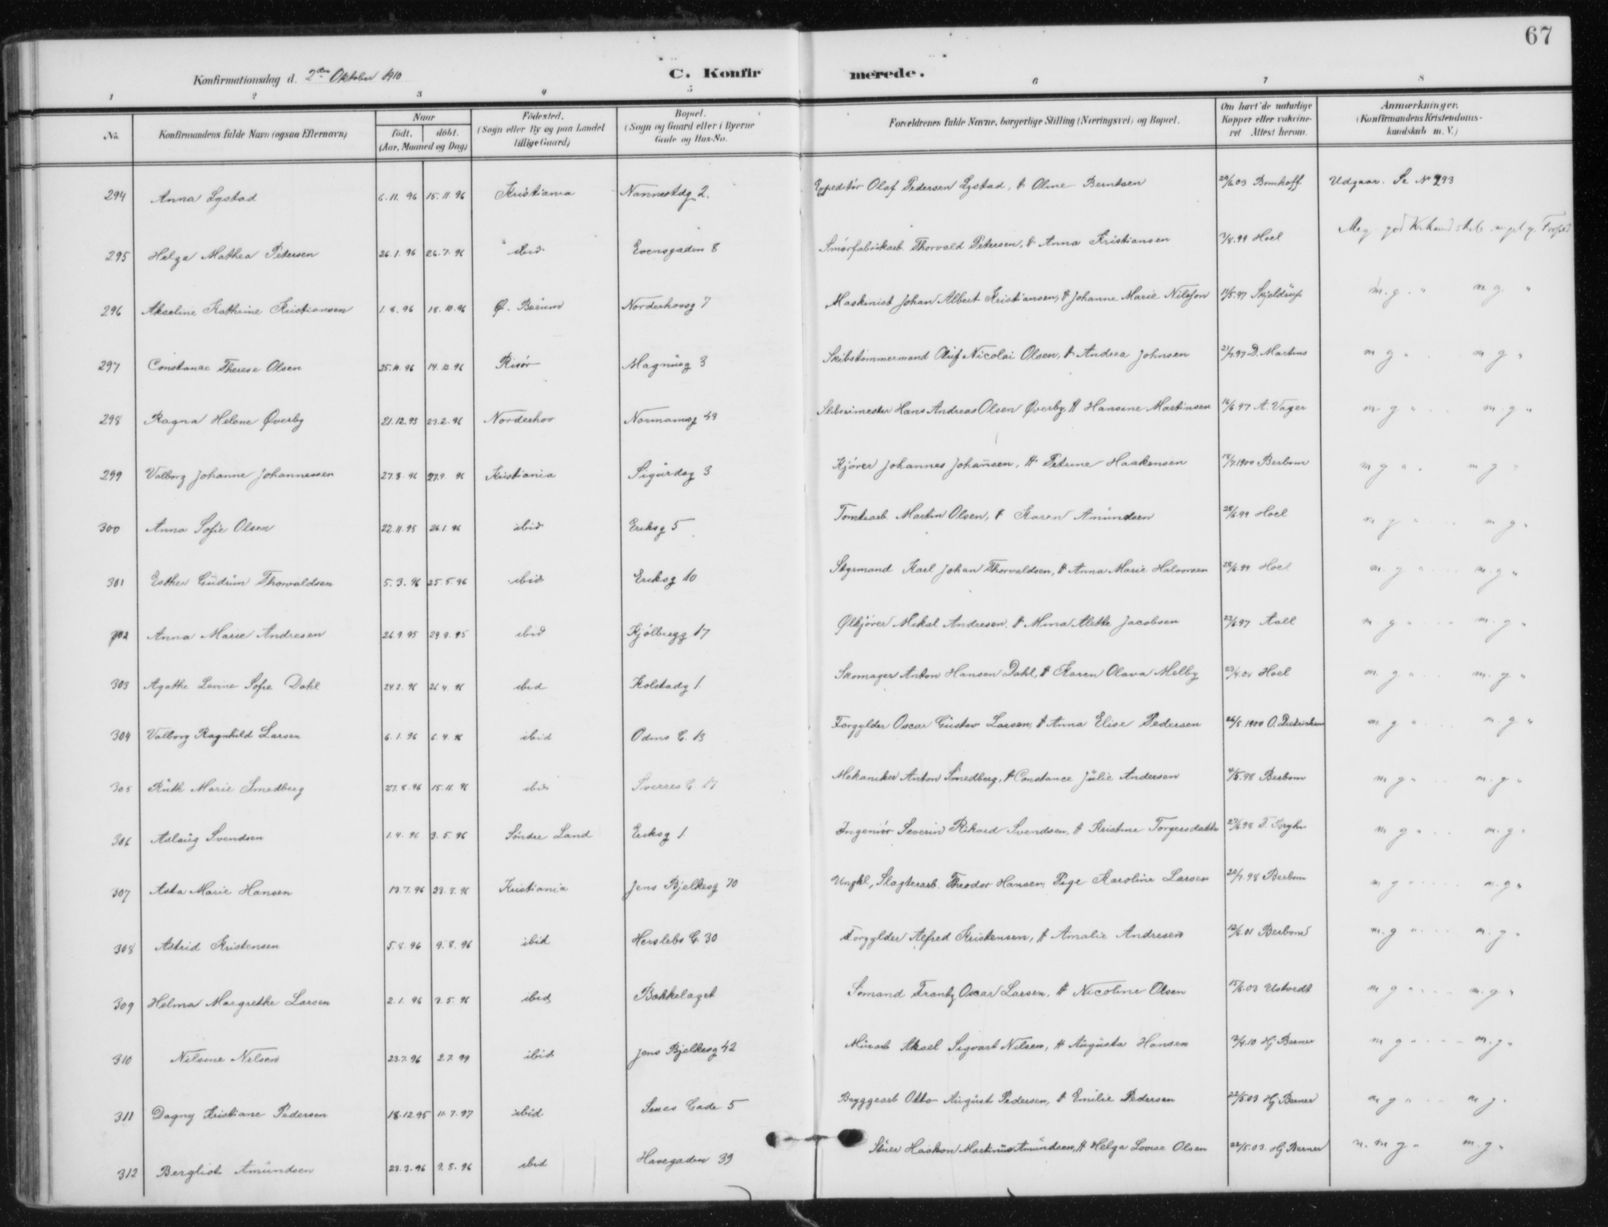 67
Konfirmationsdag d. 2den Oktober 1910
C. Konfirmerede.
1 2 3 4 5 6 7 8
No. Konfirmandens fulde Navn (ogsaa Efternavn) Naar født. døbt. (Aar, Maaned og Dag) Fødested. (Sogn eller By og paa Landet tillige Gaard) Bopæl. (Sogn og Gaard eller i Byerne Gade og Hus-No. Forældrenes fulde Navne, borgerlige Stilling (Næringsvei) og Bopæl. Om havt de naturlige Kopper eller vakcineret Attest herom. Anmærkninger. (Konfirmandens Kristendomskundskab m. V.)
294 Anna Lystad 6.11.96 15.11.96 Kristiania Nannestdg. 2. Expeditør Olaf Pedersen Lystad, & Oline Berntsen Udgaar. Se No 293
295 Helga Mathea Petersen 26.1.96 26.7.96 ibid Evensgaden 8 Smørfabrikarb. Thorvald Petersen, & Anna Kristiansen 7/8.99 Hoel Meg. god
296 Akseline Kathrine Kristiansen 1.8.96 18.10.96 Ø. Bærum Norderhovsg 7 Maskinist Johan Albert Kristiansen, & Johanne Marie Nilsson Skjeldrup m.g. " m g "
297 Constance Therese Olsen 25.11.96 14.12.96 Risør Magnusg 3 Skibstømmermand Oluf Nicolai Olsen, & Andrea Johnsen 21/7.97 D. Martins m g " m g "
298 Ragna Helene Øverby 21.12.95 23.2.96 Norderhov Normannsg 49 Hans Andreas Olsen Øverby, & Hansine Martinsen A. Vager m. g " m. g "
299 Valborg Johanne Johannessen 27.8.96 27.9.96 Kristiania Sigurdsg 3 Kjører Johannes Johansen, & Petrine Haakensen 1900 Berbom m g " m g "
300 Anna Sofie Olsen 22.11.95 26.1.96 ibid Eriksg 5 Tomtearb. Martin Olsen, & Karen Amundsen 28/6.99 Hoel m g " m g "
301 Esther Gudrun Thorvaldsen 5.3.96 25.5.96 ibid Eriksg 10 Styrmand Karl Johan Thorvaldsen, & Anna Marie Halvorsen 28/6.99 Hoel m. g " m. g "
302 Anna Marie Andresen 26.9.95 29.9.95 ibid Kjølbergg 17 Ølkjører Mikal Andresen, & Mina Alette Jacobsen 23/6.97 Aall m. g " m. g "
303 Agathe Lovine Sofie Dahl 24.2.96 26.4.96 ibid Kolstadg 1 Skomager Anton Hansen Dahl, & Karen Olava Melby Hoel m. g " m. g "
304 Valborg Ragnhild Larsen 6.1.96 6.4.96 ibid Odins G. 13 Forgylder Oscar Gustav Larsen, & Anna Elise Pedersen 26/5.1900 O. Diedrichsen m. g " m. g "
305 Ruth Marie Smedberg 27.8.96 15.11.96 ibid Sverres G 17 Mekaniker Anton Smedberg, & Constance Julie Andersen Berbom m g " m. g "
306 Aslaug Svendsen 1.4.96 3.5.96 Søndre Land Eriksg 1 Ingeniør Severin Rikard Svendsen, & Kristine Torgersdatter m g " m. g "
307 Asta Marie Hansen 13.7.96 23.8.96 Kristiania Jens Bjelkesg 70 Ungkl., Slagterarb. Theodor Hansen, Pige Karoline Larsen 22/7.98 Berbom m g " m. g "
308 Astrid Kristensen 5.8.96 9.8.96 ibid Herslebs G. 30 Forgylder Alfred Kristensen, & Amalie Andresen Berbom m. g " m. g "
309 Helma Margrethe Larsen 2.1.96 3.5.96 ibid Bakkelaget Sømand Frantz Oscar Larsen, & Nicoline Olsen 15/6.03 Ustvedt m g " m. g "
310 Nilsine Nilsen 23.7.96 2.7.99 ibid Jens Bjelkesg 42 Murarb. Aksel Sigvart Nilsen, & Augusta Hansen Hj Berner m g " m. g "
311 Dagny Kristiane Pedersen 18.12.95 11.7.97 ibid Gade 5 Bryggearb Otto August Pedersen, & Emilie Pedersen 22/5.03 Hj Berner m g " m g "
312 Bergliot Amundsen 23.3.96 9.8.96 ibid Havegaden 39 Haakon Martinus Amundsen, & Helga Lovise Olsen 22/5.03 Hj Berner n. m g " m. g "